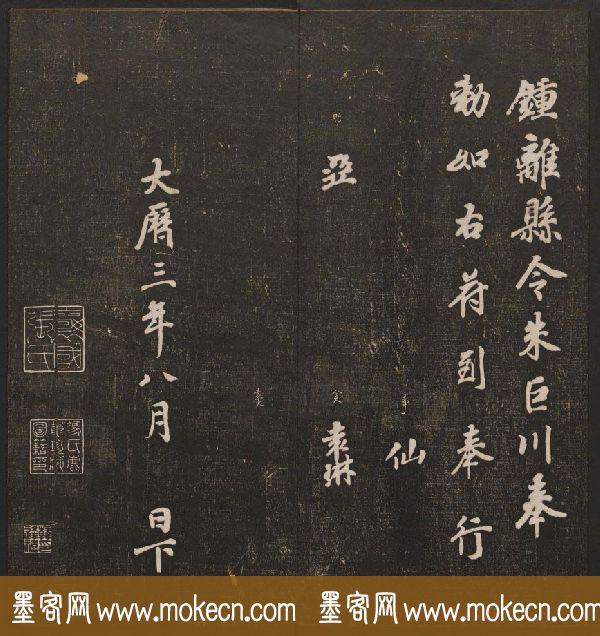 鍾離縣令朱巨川奉
勅如右苻到奉行
仙
亞
袁琳
大曆三年八月 日下
墨客网 www.mokecn.com 墨客网 www.mokecn.com